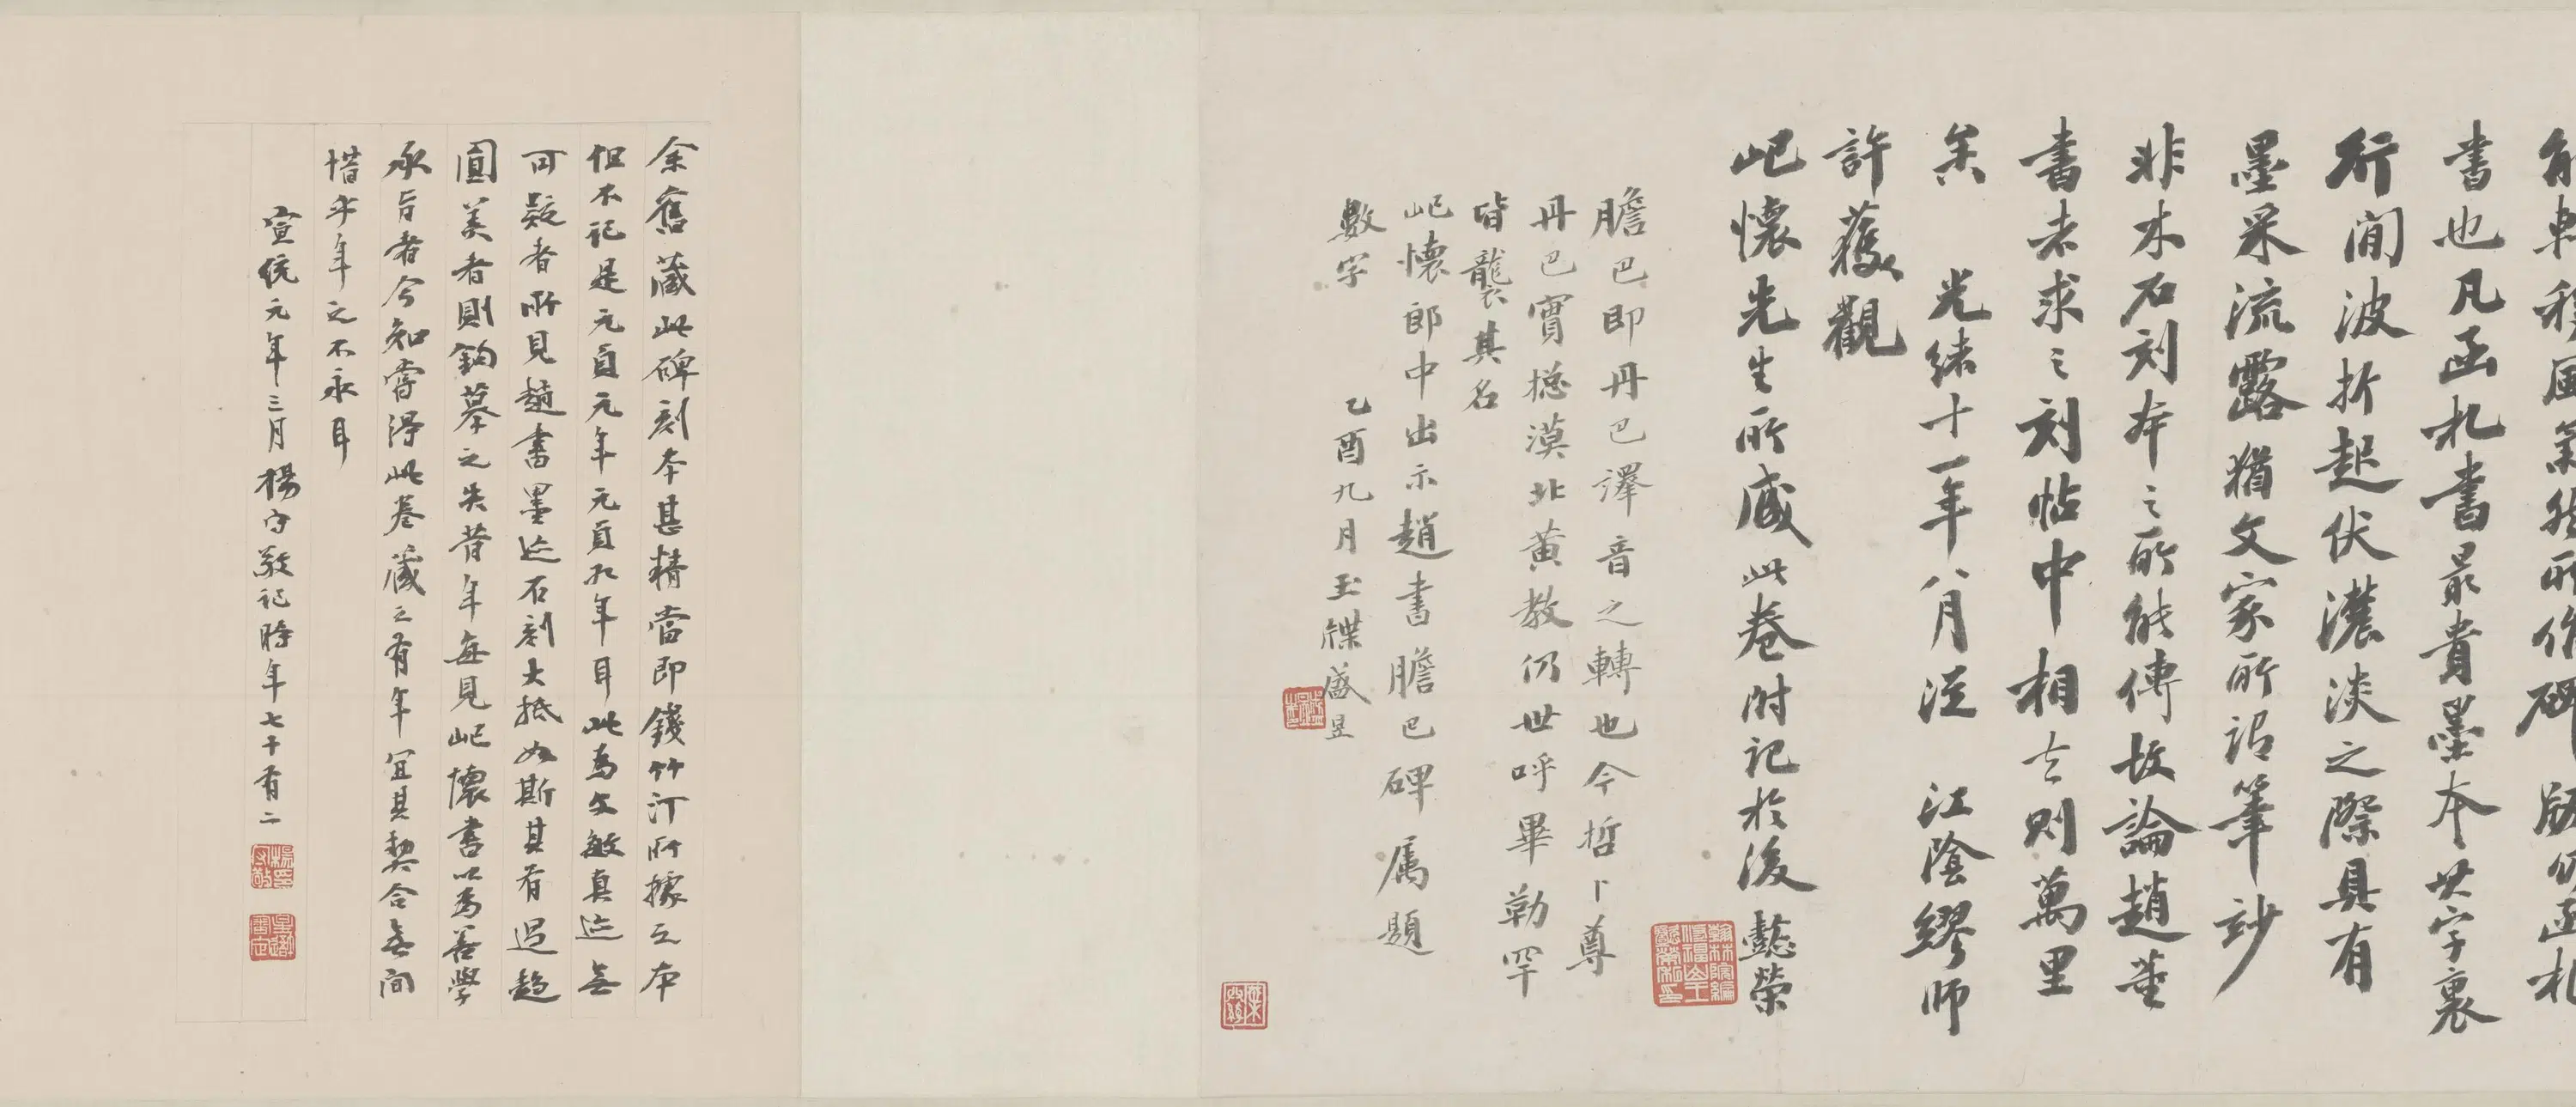 書也凡函札書最貴墨本其字裏
行間波折起伏濃淡之際具有
墨采流露猶文家所詔筆妙
非木石刻本之所能傳故論趙董
書未求之刻帖中相去則萬里
矣　光緒十一年八月從　江陰繆師
許獲觀
屺懷先生所臧此卷附記於後懿榮
膽巴即丹巴譯音之轉也今哲卜尊
丹巴實摠漠北黃教仍世呼畢勒罕
皆襲其名
屺懷郎中出示趙書膽巴碑屬題
數字　乙酉九月玉牒盛昱
余舊藏此碑刻本甚精當即錢竹汀所據之本
但不記是元貞元年元貞九年耳此為文敏真迹無
可疑者所見趙書墨迹石刻大抵如斯其有過趨
圓美者則鈎摹之失昔年每見屺懷書以為善學
承旨者今知嘗得此卷藏之有年宜其契合無間
惜乎年之不永耳
宣統元年三月楊守敬記時年七十有二